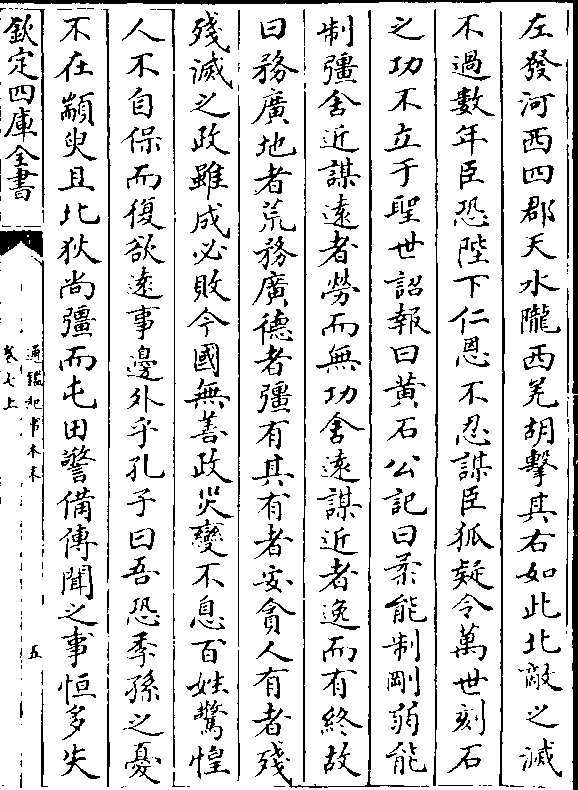 左發河西四郡天水隴西羌胡擊其右如此北敵之滅
不過數年臣恐陛下仁恩不忍謀臣狐疑令萬世刻石
之功不立于聖世詔報曰黃石公記曰柔能制剛弱能
制彊舍近謀遠者勞而無功舍遠謀近者逸而有終故
曰務廣地者荒務廣德者彊有其有者安貪人有者殘
殘滅之政雖成必敗今國無善政災變不息百姓驚惶
人不自保而復欲遠事邊外乎孔子曰吾恐季孫之憂
不在顓臾且北狄尚彊而屯田警備傳聞之事恒多失
欽定四庫全書
通鑑紀事本末
卷七上
五